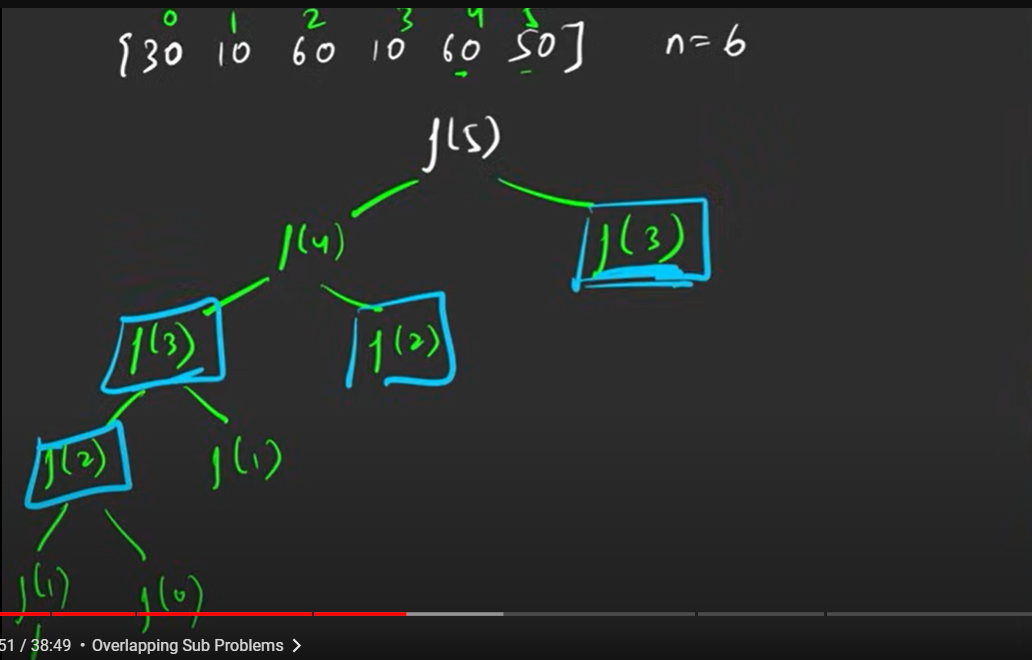 0 1 2 3 4 5
[30 10 60 10 60 50] n=6
f(5)
f(4) f(3)
f(3) f(2)
f(2) f(1)
f(1) f(0)
51 / 38:49 • Overlapping Sub Problems >